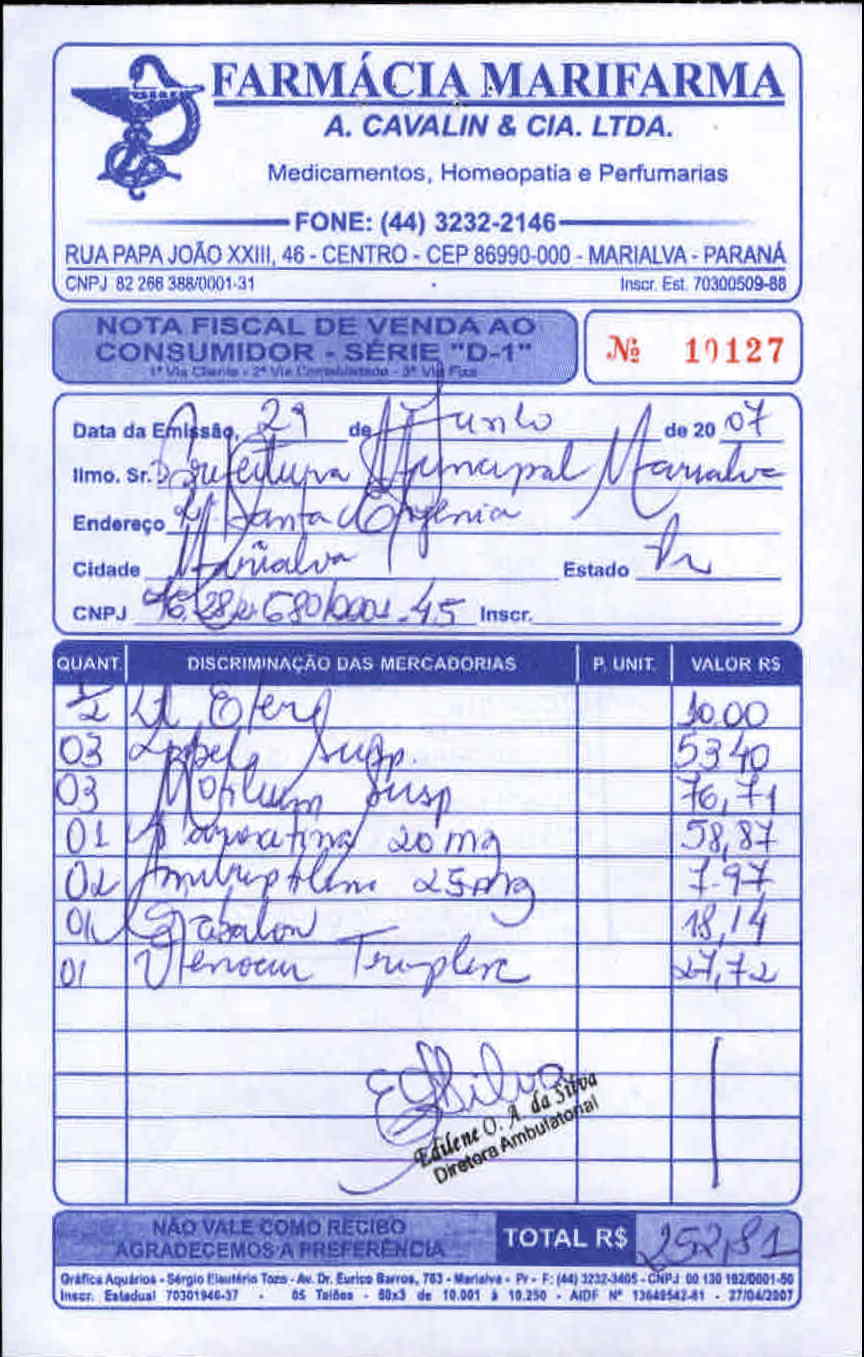 FARMÁCIA MARIFARMA
A. CAVALIN & CIA. LTDA.
Medicamentos, Homeopatia e Perfumarias
FONE: (44) 3232-2146
RUA PAPA JOÃO XXIII, 46 - CENTRO - CEP 86990-000 - MARIALVA - PARANÁ
CNPJ 82 266 388/0001-31 Inscr. Est. 70300509-88
NOTA FISCAL DE VENDA AO
CONSUMIDOR - SÉRIE "D-1"
1ª Via Cliente - 2ª Via Contabilidade - 3ª Via Fixa
Nº 10127
Data da Emissão, 29 de Junho de 20 07
Ilmo. Sr. Prefeitura Municipal Marialva
Endereço Santa Efigenia
Cidade Marialva Estado Pr
CNPJ 76.282.680/0001-45 Inscr.
QUANT. DISCRIMINAÇÃO DAS MERCADORIAS P. UNIT. VALOR R$
1/2 Lt 10.00
03 Susp. 53 40
03 Motilium Susp 76,71
01 20 mg 58,87
02 Amitriptilina 25mg 7.97
01 18,14
01 27,72
Edilene O. A. da Silva
Diretora Ambulatorial
NÃO VALE COMO RECIBO
AGRADECEMOS A PREFERÊNCIA
TOTAL R$ 252,81
Gráfica Aquários - Sérgio Eleutério Tozo - Av. Dr. Eurico Barros, 763 - Marialva - Pr - F: (44) 3232-3405 - CNPJ 00 130 192/0001-50
Inscr. Estadual 70301946-37 - 05 Talões - 50x3 de 10.001 à 10.250 - AIDF Nº 13649542-81 - 27/04/2007